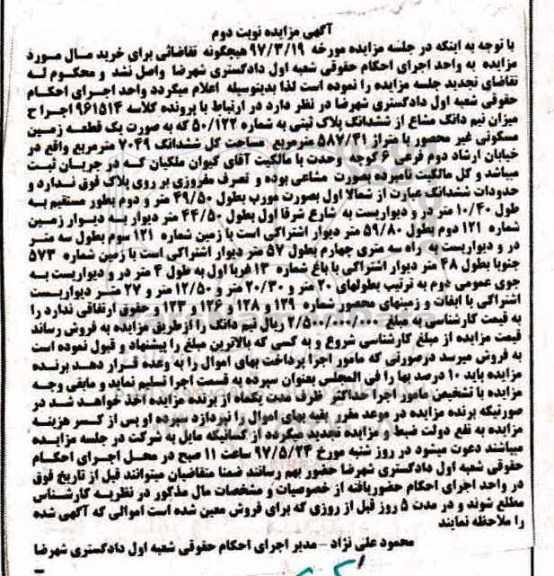 آگهی مزایده نوبت دوم
با توجه به اینکه در جلسه مزایده مورخه ۹۷/۳/۱۹ هیچگونه تقاضائی برای خرید مال مورد
مزایده به واحد اجرای احکام حقوقی شعبه اول دادگستری شهرضا واصل نشد و محکوم له
تقاضای تجدید جلسه مزایده را نموده است لذا بدینوسیله اعلام میگردد واحد اجرای احکام
حقوقی شعبه اول دادگستری شهرضا در نظر دارد در ارتباط با پرونده کلاسه ۹۶۱۵۱۴ اجرا ح
میزان نیم دانگ مشاع از ششدانگ پلاک ثبتی به شماره ۵۰/۱۲۲ که به صورت یک قطعه زمین
مسکونی غیر محصور با متراژ ۵۸۷/۴۱ مترمربع مساحت کل ششدانگ ۷۰۴۹ مترمربع واقع در
خیابان ارشاد دوم فرعی ۶ کوچه وحدت با مالکیت آقای کیوان ملکیان که در جریان ثبت
میباشد و کل مالکیت نامبرده بصورت مشاعی بوده و تصرف مفروزی بر روی پلاک فوق ندارد و
حدودات ششدانگ عبارت از شمالا اول بصورت مورب بطول ۴۹/۵۰ متر و دوم بطور مستقیم به
طول ۱۰/۴۰ متر در و دیواریست به شارع شرقا اول بطول ۴۴/۵۰ متر دیوار به دیوار زمین
شماره ۱۲۱ دوم بطول ۵۹/۸۰ متر دیوار اشتراکی است با زمین شماره ۱۲۱ سوم بطول سه متر
در و دیواریست به راه سه متری چهارم بطول ۵۷ متر دیوار اشتراکی است با زمین شماره ۵۷۳
جنوبا بطول ۴۸ متر دیوار اشتراکی با باغ شماره ۱۳ غربا اول به طول ۴ متر در و دیواریست به
جوی عمومی دوم به ترتیب بطولهای ۲۰ متر و ۲۰/۳۰ متر و ۱۲/۵۰ متر و ۲۷ متر دیواریست
اشتراکی با ابقات و زمینهای محصور شماره ۱۲۹ و ۱۲۸ و ۱۲۶ و ۱۲۳ و حقوق ارتفاقی ندارد را
به قیمت کارشناسی به مبلغ ۲/۵۰۰/۰۰۰/۰۰۰ ریال نیم دانگ را ازطریق مزایده به فروش رساند
قیمت مزایده از مبلغ کارشناسی شروع و به کسی که بالاترین مبلغ را پیشنهاد و قبول نموده است
به فروش میرسد درصورتی که مامور اجرا پرداخت بهای اموال را به وعده قرار دهد برنده
مزایده باید ۱۰ درصد بها را فی المجلس بعنوان سپرده به قسمت اجرا تسلیم نماید و مابقی وجه
مزایده با تشخیص مامور اجرا حداکثر ظرف مدت یکماه از برنده مزایده اخذ خواهد شد در
صورتیکه برنده مزایده در موعد مقرر بقیه بهای اموال را نپردازد سپرده او پس از کسر هزینه
مزایده به نفع دولت ضبط و مزایده تجدید میگردد از کسانیکه مایل به شرکت در جلسه مزایده
میباشند دعوت میشود در روز شنبه مورخ ۹۷/۵/۲۴ ساعت ۱۱ صبح در محل اجرای احکام
حقوقی شعبه اول دادگستری شهرضا حضور بهم رسانند ضمنا متقاضیان میتوانند قبل از تاریخ فوق
در واحد اجرای احکام حضوریافته از خصوصیات و مشخصات مال مذکور در نظریه کارشناس
مطلع شوند و در مدت ۵ روز قبل از روزی که برای فروش معین شده است اموالی که آگهی شده
را ملاحظه نمایند
محمود علی نژاد – مدیر اجرای احکام حقوقی شعبه اول دادگستری شهرضا